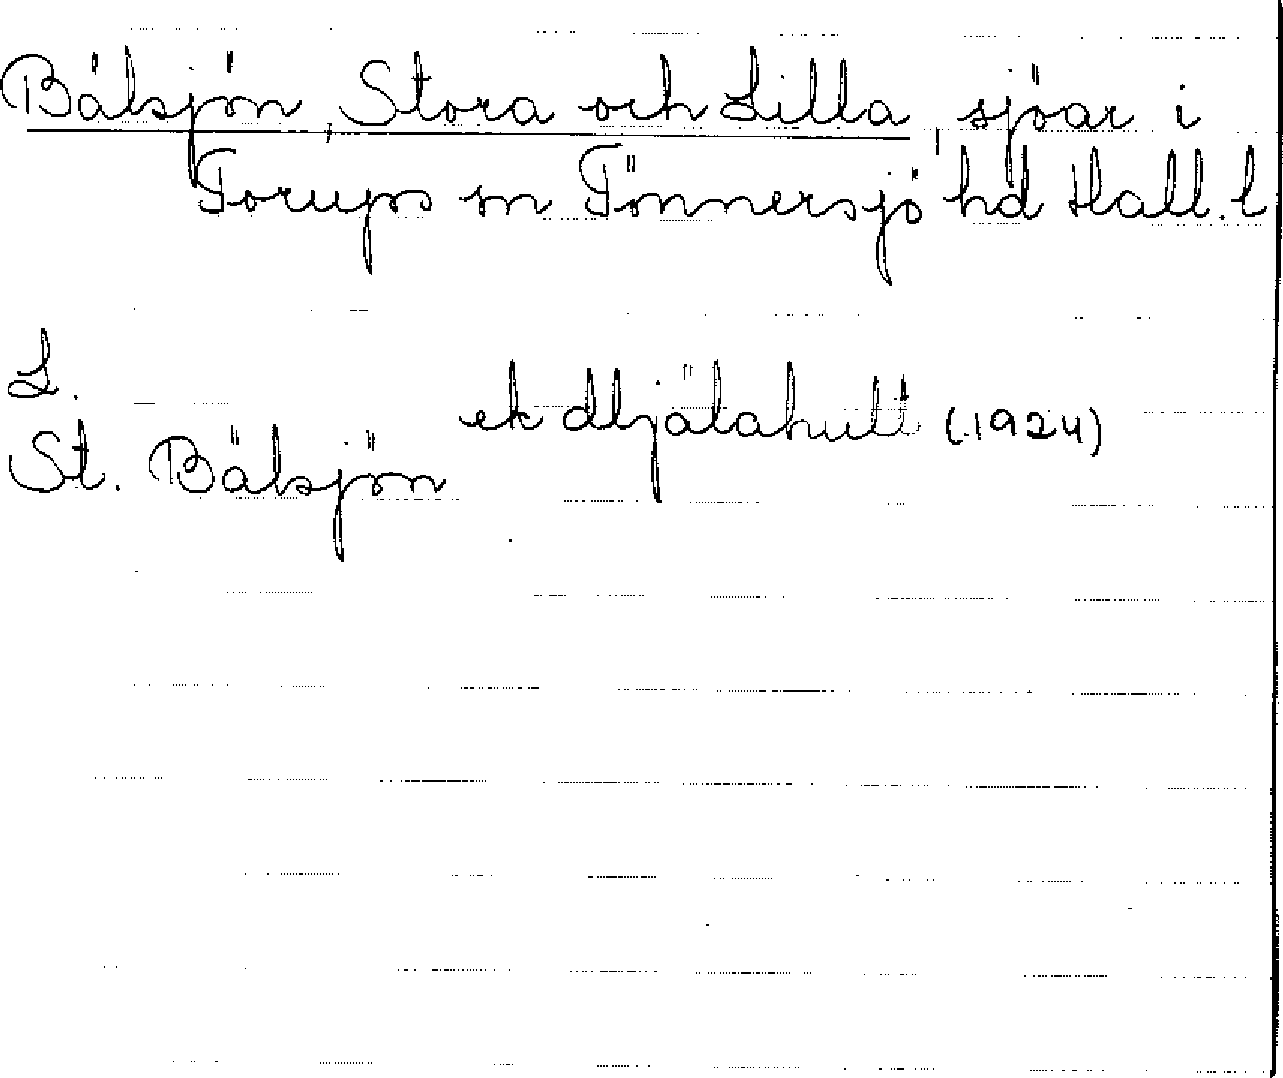 Bälsjön, Stora och Lilla, sjöar i
Torups sn Tönnersjö hd Hall. l
L.
St. Bälsjön ek dhjälahult (1924)